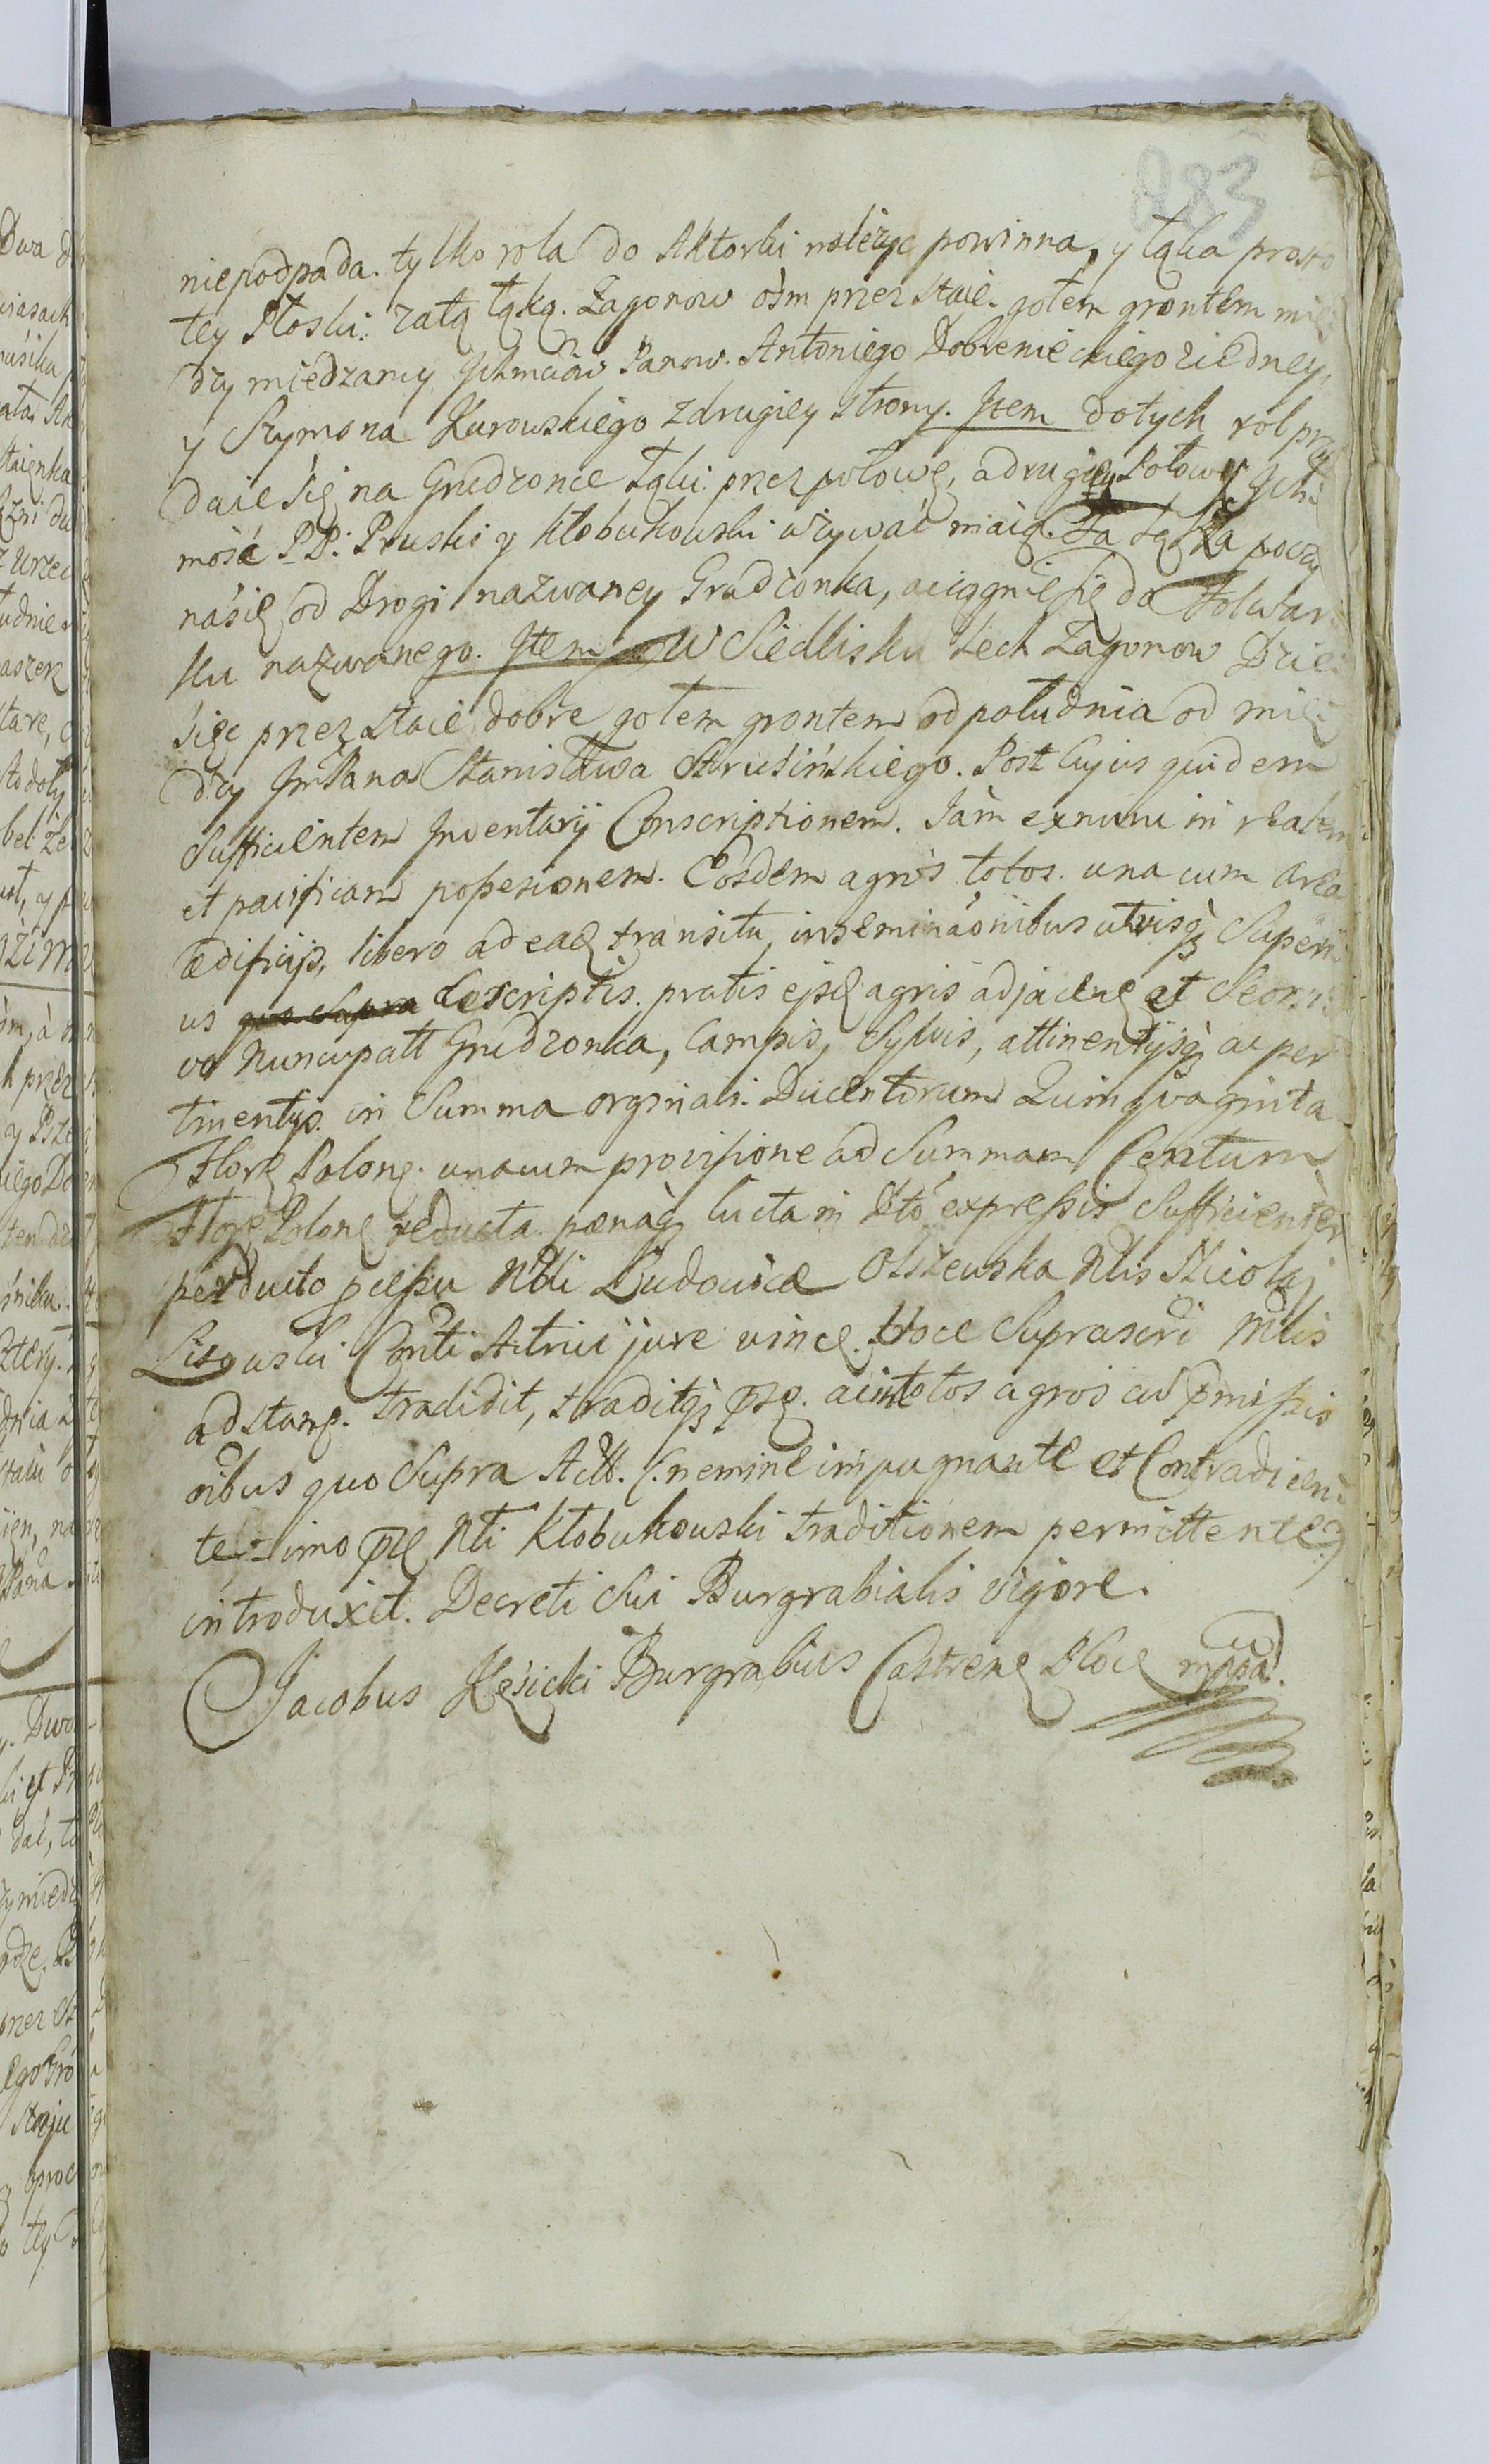 883
niepodpada. tylko rola do Aktorki należyc powinna, y łąka prosto
tey Płoski. zatą łąką. Zagonow ośm przez staie. gołem grontem mię:
dzy miedzamy Jchmciów Panow. Antoniego Dobrenieckiego ziedney,
y Szymona Kurowskiego zdrugiey strony. Jtem dotych rol przy
daie się na Grudzonce łąki przez połowę, adrugiey Połowy Jchs
mość PP: Pruski y Kłobukowski używać maią. Ta łąka poczy
násię od Drogi nazwaney Grudzonka, aciągnie się do Folwar:
ku nazwanego. Jtem W Siedlisku tech Zagonow Dzie:
sięc przez staie dobre gołem grontem od południa od mie:
dzy JmPana Stanisława Strusińskiego. Post Cujus quidem
Sufficientem Jnventarij Conscriptionem. Jàm exnunc in realem
et pacificam possesionem. Eosdem agros totos. una cum area
ædificijs, libero ad eaę transitu, inseminãonibus utrisqȝ Superi:
us quo supra descriptis. pratis ejsę agris adjaceñę et Seorsi:
vo Nuncupatt Grudzonka, Campis, Sylvis, attinentijsqȝ ac per
tinentijs. in Summa orginali. Ducentorum Quinquaginta
Florę Polonę. unacum provisione ad Summam Centum
Florę Polonę reducta. pænaqȝ lucta in Dtô expressis Sufficienter
perducto pcessu Nbli Ludovicæ Olszewska Nlis Nicolaj
Lisowski Conti Actrici jure vincę. Hsce Suprascri Mlis
adstanę. tradidit, traditqȝ pnę. acintotos agros cū pmissis
oibus quo Supra Actt. (nemine impugnante et Contradicen:
te imo pnę Nli Kłobukowski traditionem permittente)
introduxit. Decreti sui Burgrabialis vigore.
Jacobus Kęsicki Burgrabius Castreñę Plocę mppa